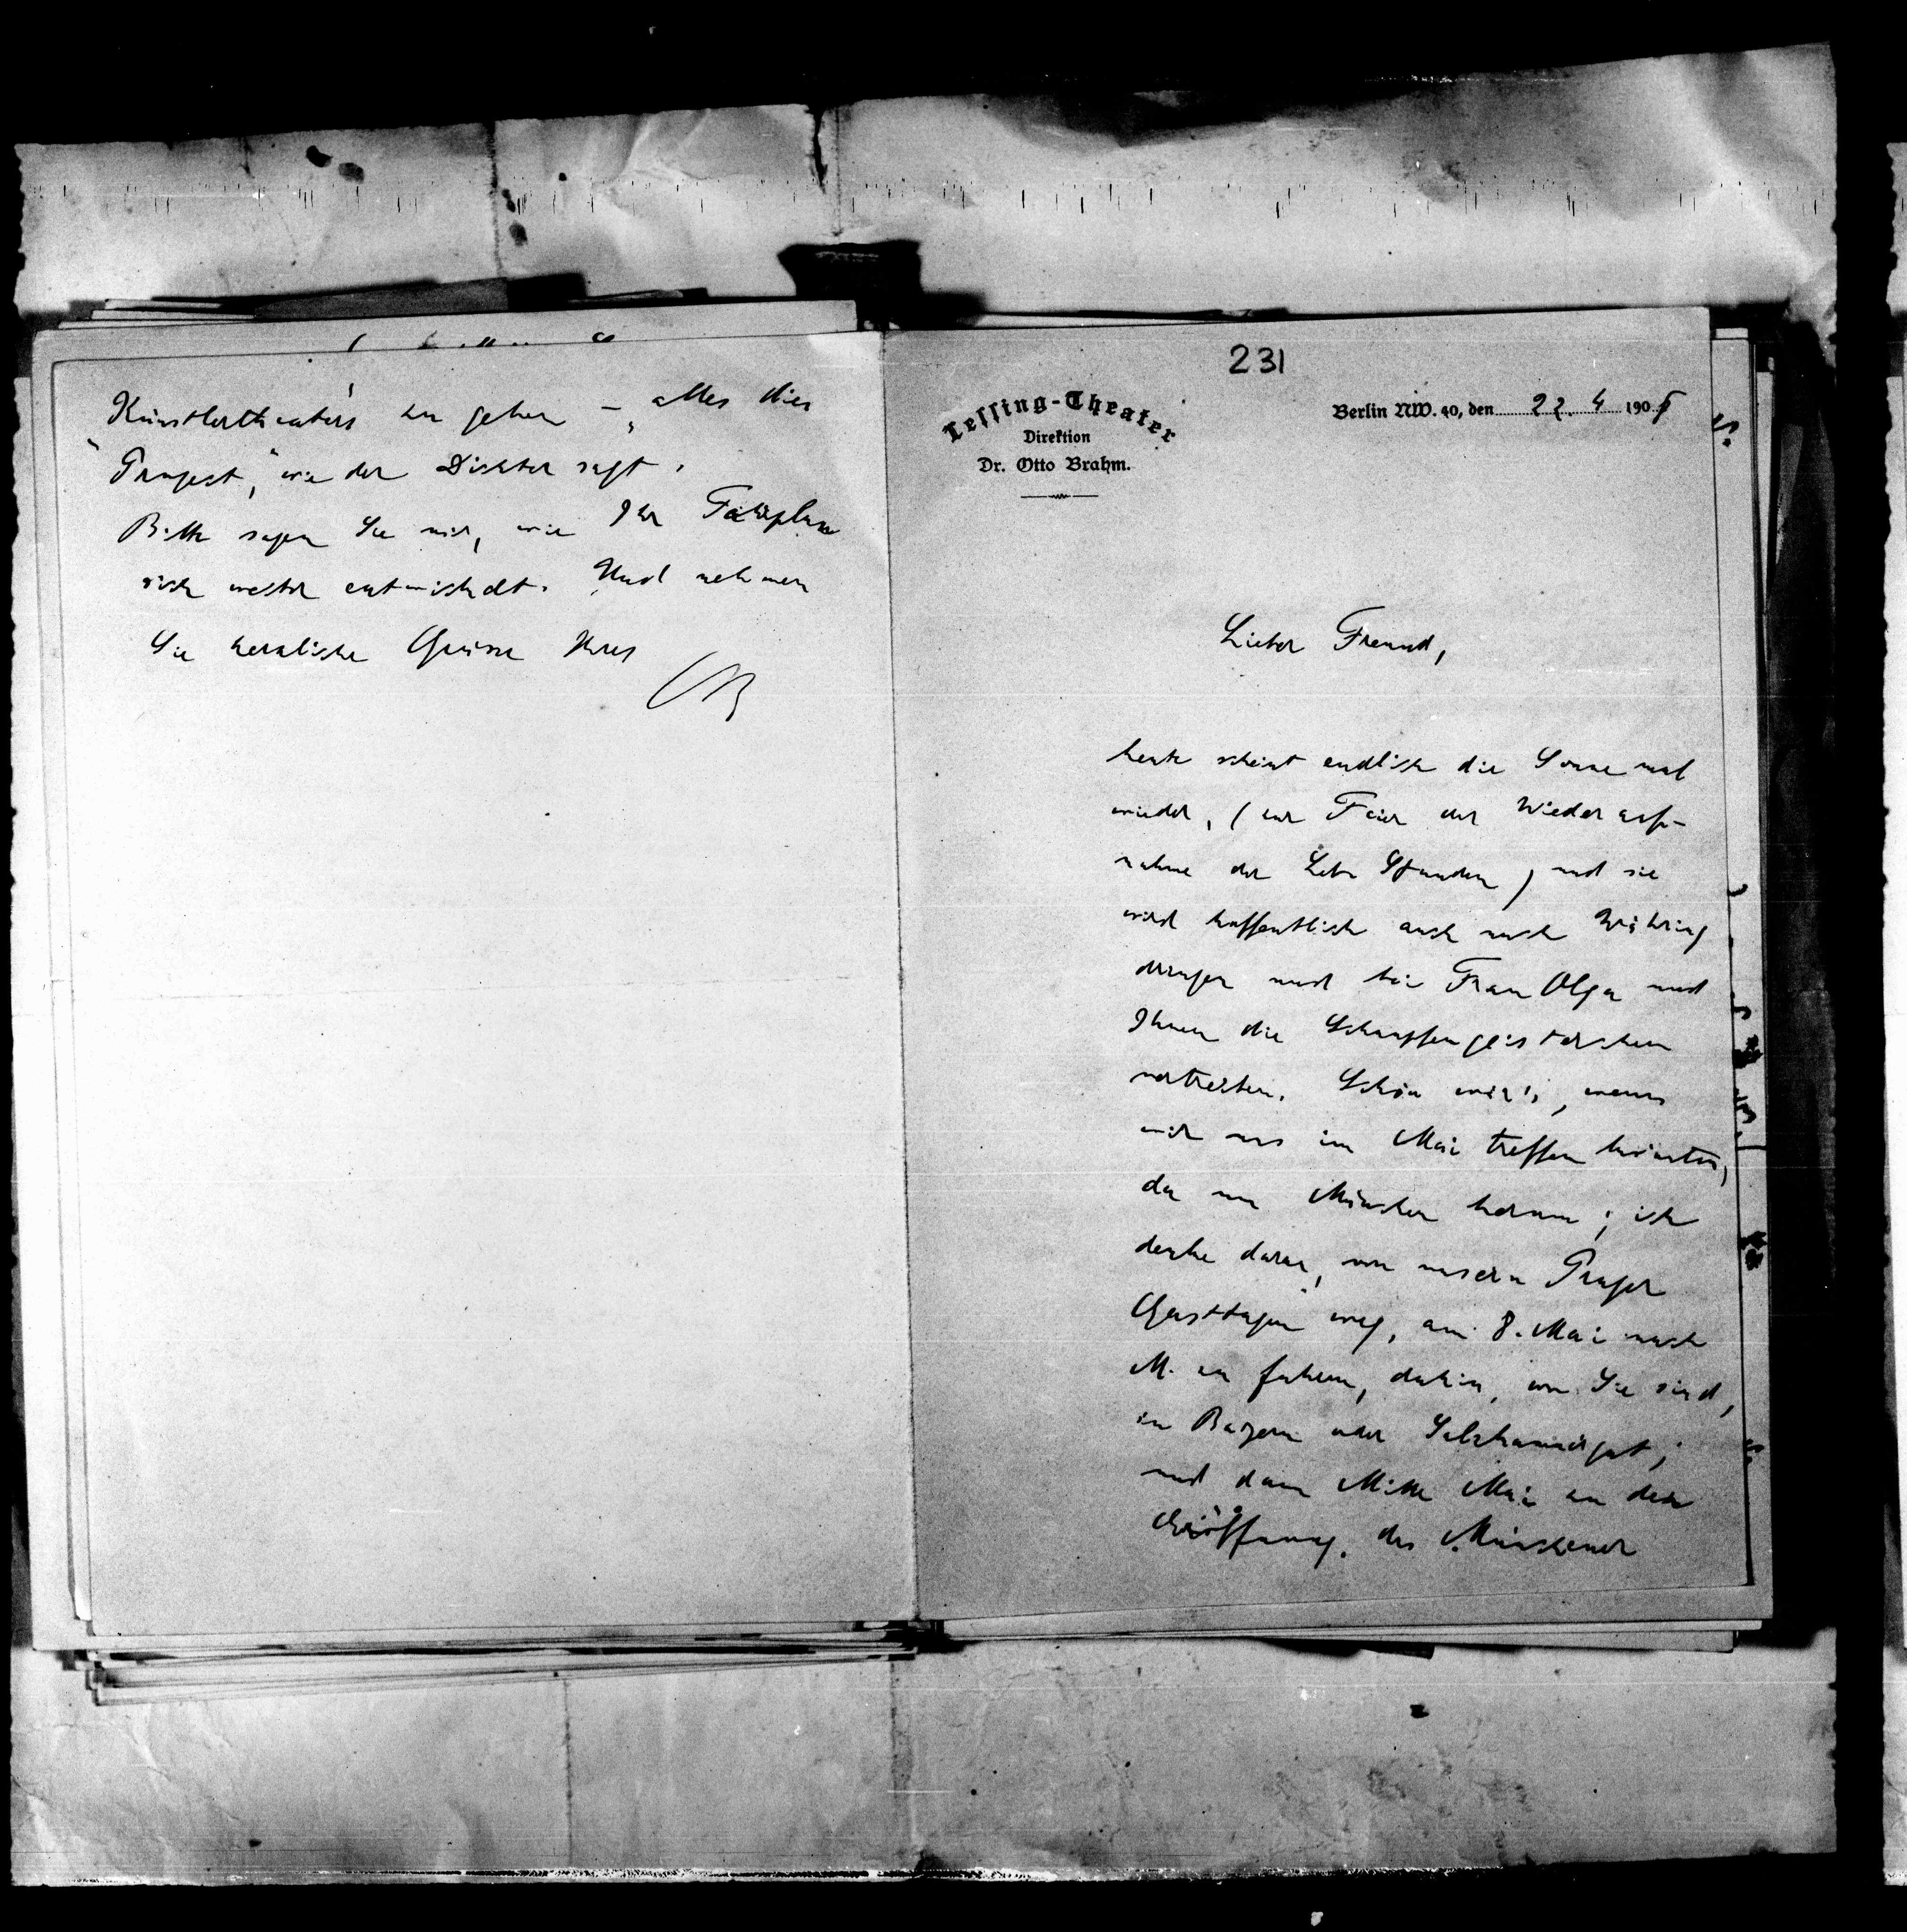 231
Lessing-Theater
Direktion
Dr. Otto Brahm.
Berlin NW. 40, den 22. 4 1908
Lieber Freund,
heute scheint endlich die Sonne mal
wieder, (zur Feier der Wiederauf-
nahme der Leb. Stunden) und sie
wird hoffentlich auch nach Währing
dringen und bei Frau Olga und
Ihnen die Schnupfengeisterchen
vertreiben. Schön wär's, wenn
wir uns im Mai treffen könnten,
da um München herum; ich
denke daran, von unsern Prager
Gasttagen weg, am 8. Mai nach
M. zu fahren, dahin, wo Sie sind,
in Bayern oder Salzkammergut;
und dann Mitte Mai zu der
Eröffnung des Münchener
Künstlertheaters zu gehen – alles dies
wie der Dichter sagt.
Bitte sagen Sie mir, wie Ihr Fahrplan
sich weiter entwickelt. Und nehmen
Sie herzliche Grüsse Ihres
OB